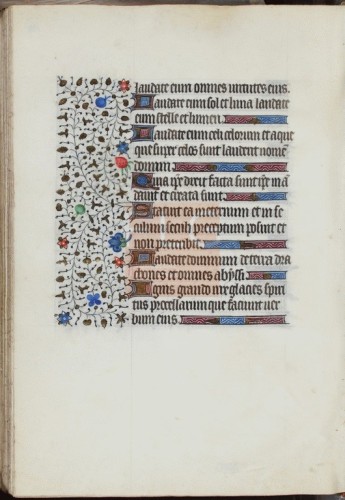 laudate eum omnes uirtutes eius.
Laudate eum sol et luna laudate
eum stelle et lumen.
Laudate eum celi celorum et aque
que super celos sunt laudent nomē
domini.
Quia ipē dixit facta sunt ipē mā
dauit et creata sunt.
Statuit ea in eternum et in se
culum seculi preceptum posuit et
non preteribit.
Laudate dominum de terra dra
cones et omnes abyssi.
Ignis grando nix glacies spiri
tus procellarum que faciunt uer
bum eius.